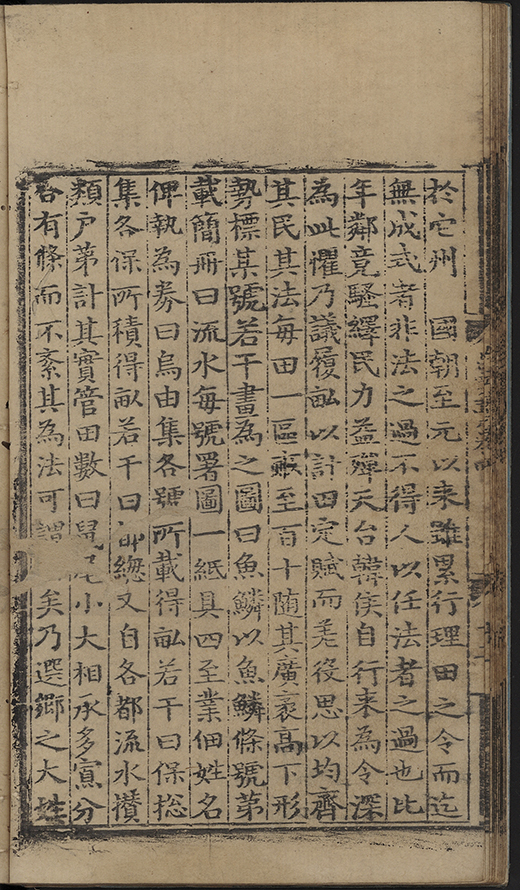 於它州　國朝至元以來雖累行理田之令而迄
無成式者非法之過不得人以任法者之過也比
年鄰竟騷繹民力益殫天台韓侯自行來為令深
為此懼乃議履畝以計田定賦而差役思以均齊
其民其法每田一區畝至百十隨其廣袤髙下形
勢標其號若干畫為之圖曰魚鱗以魚鱗條號第
載簡冊曰流水每號署圖一紙具四至業佃姓名
俾執為劵曰烏由集各號所載得畝若干曰保捴
集各保所積得畝若干曰都緫又自各都流水攅
類户第計其實管田數曰鼠尾小大相承多寡分
合有條而不紊其為法可謂矣乃選鄉之大姓